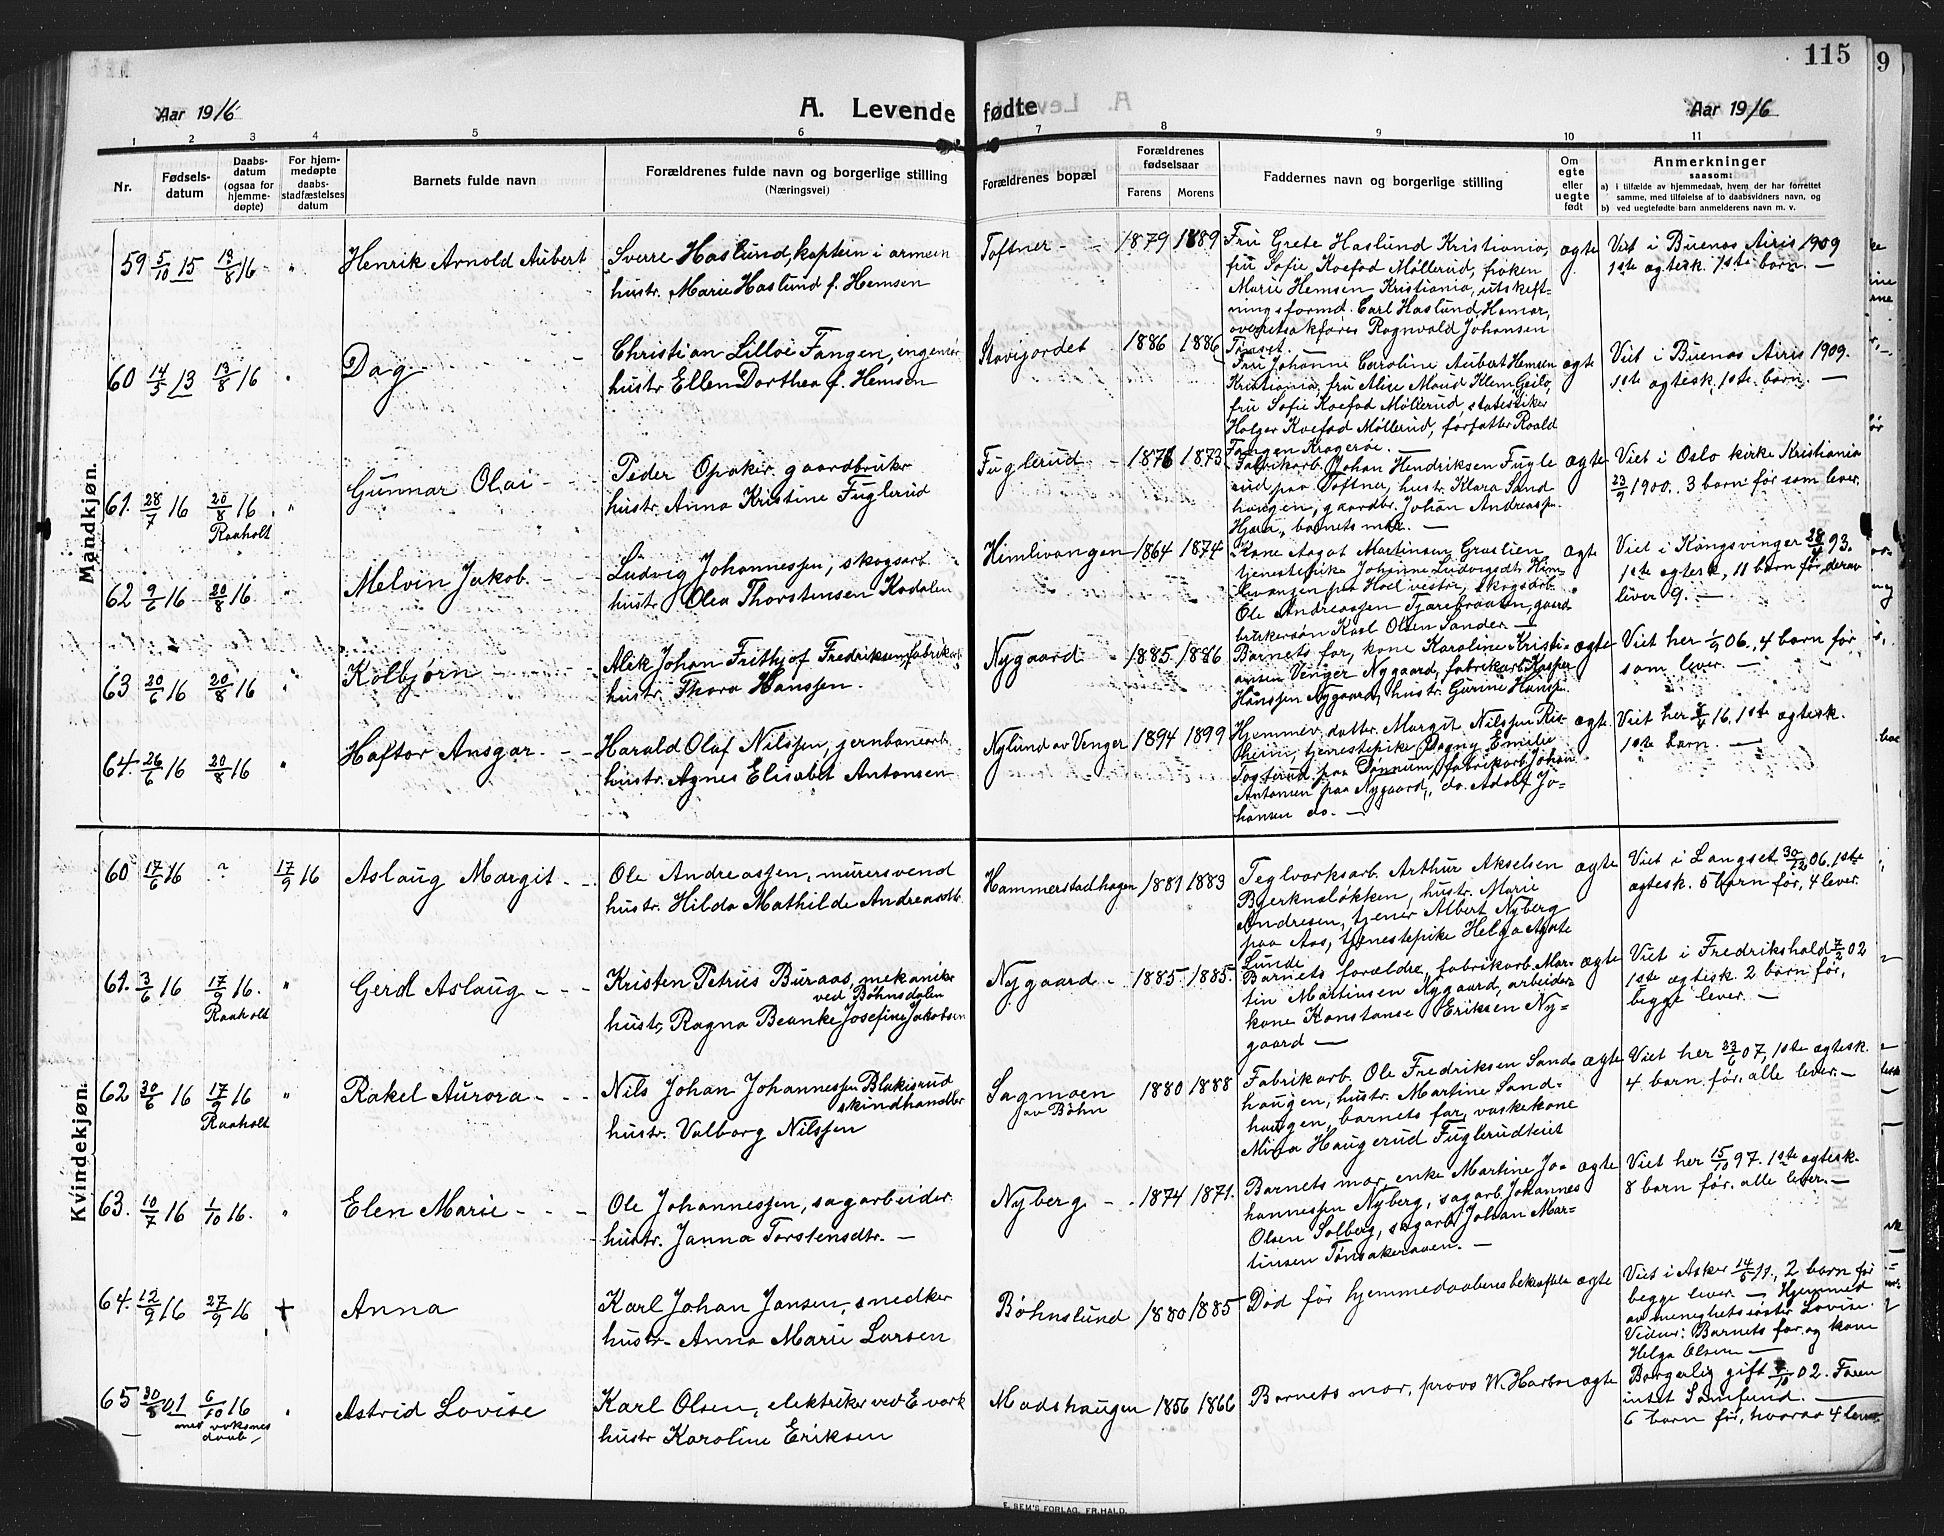 115
9
Aar 1916
A. Levende fødte
Aar 1916
1 2 3 4 5 6 7 8 9 10 11
Nr.
Fødsels-
datum
Daabs-
datum
(ogsaa for
hjemme-
døpte)
For hjem-
medøpte
daabs-
stadfæstelses
datum
Barnets fulde navn
Forældrenes fulde navn og borgerlige stilling
(Næringsvei)
Forældrenes bopæl
Forældrenes
fødselsaar
Farens Morens
Faddernes navn og borgerlige stilling
Om
egte
eller
uegte
født
Anmerkninger
saasom:
a) i tilfælde av hjemmedaab, hvem der har forrettet
samme, med tilføielse af to daabsvidners navn, og
b) ved uegtefødte barn anmelderens navn m. v.
Mandkjøn.
59 5/10 15 13/8 16 " Henrik Arnold Aubert
Sverre Haslund, kaptein i armeen
hustr. Marie Haslund f. Hemsen
Toftner - - 1879 1889
Fru Grete Haslund Kristiania,
fru Sofie Koefod Møllerud, frøken
Marie Hemsen Kristiania, utskift-
ningsformd. Carl Haslund, Hamar,
overretsakfører Ragnvald Johansen
egte
Viet i Buenos Airis 1909
1ste egtesk. 1ste barn. —
60 14/5 13 13/8 16 " Dag
Christian Lilloe Fangen, ingeniør
hustr Ellen Dorthea f. Hemsen
1886 1886
Fru Johanne Caroline Aubert Hemsen
Kristiania, fru Alise Maud Klem, Geilo,
fru Sofie Koefod Møllerud,
Holger Koefod Møllerud, forfatter Roald
Fangen Kragerøe. —
egte
Viet i Buenos Airis 1909.
1ste egtesk. 1ste barn. —
61. 28/7 16 20/8 16 " Gunnar Olai - -
Raaholt
Peder Opaker, gaardbruker
hustr. Anna Kristine Fuglerud
Fuglerud - 1876 1873
Fabrikarb. Johan Hendriksen Fugle
rud paa Toftner, hustr. Klara Sand
haugen, gaardbr. Johan Andreassen
barnets mor. —
egte
Viet i Oslo kirke Kristiania
23/9 1900. 3 barn før som lever.
62 9/6 16 20/8 16 " Melvin Jakob. - -
Ludvig Johannessen, skogsarb.
hustr. Olea Thorstensen Kodalen
Himlivangen 1864 1874
Kone Aagot Martinsen Graslien
tjenestepike Johanne Ludvigsdt. Him-
livangen paa Hoel vestre, skogsarb.
Ole Andreassen Tjærebraaten, gaard
brukersøn Karl Olsen Sander —
egte
Viet i Kongsvinger 93.
1ste egtesk, 11 barn før, derav
lever 9. —
63 20/6 16 20/8 16 " Kolbjørn - - -
Alek Johan Frithjof Fredriksen, fabrikarb.
hustr. Thora Hanssen.
Nygaard - 1885 1886
Barnets far, kone Karoline Kristi-
ansen Venger Nygaard, fabrikarb. Kasper
Hanssen Nygaard, hustr. Gurine Hanss.
egte
Viet her 1/9 06. 4 barn før
som lever. —
64. 26/6 16 20/8 16 " Haftor Ansgar. - -
Harald Olaf Nilssen, jernbanearb.
hustr. Agnes Elisabet Antonsen
Nylund av Venger 1894 1899
Hjemmev. datter Margit Nilssen Ris-
heim, tjenestepike Dagny Emilie
Togterud paa Dønnum, fabrikarb. Johan
Antonsen paa Nygaard, do. Adolf Jo-
hansen do. —
egte
Viet her 16. 1ste egtesk.
1ste barn. —
Kvindekjøn.
60 17/6 16 ? 17/9 16 Aslaug Margit - -
Ole Andreassen, murersvend
hustr. Hilda Mathilde Andreasdtr.
Hammerstadhagen 1881 1883
Teglverksarb. Arthur Akselsen
Bjerknesløkken, hustr. Marie
Andresen, tjener Albert Nyberg
paa Aas, tjenestepike Helga Agate
Lunde
egte
Viet i Langset 30/12 06. 1ste
egtesk. 5 barn før, 4 lever.
61. 3/6 16 17/9 16. " Gerd Aslaug - - -
Raaholt
Kristen Petrus Buraas, mekaniker
ved Bøhnsdalen
hustr. Ragna Beanke Josefine Jakobsen
Nygaard - 1885. 1885.
Barnets forældre, fabrikarb. Mar-
tin Martinsen Nygaard, arbeider-
kone Konstanse Eriksen Ny-
gaard —
egte
Viet i Fredrikshald 7/2 02
1ste egtesk. 2 barn før,
begge lever. —
62 30/6 16 17/9 16 " Rakel Aurora - - -
Raaholt
Nils Johan Johannessen Blakisrud
skindhandler
hustr. Valborg Nilssen
Sagmoen
av Bøhn
1880 1888
Fabrikarb. Ole Fredriksen Sand-
haugen, hustr. Martine Sand-
haugen, barnets far, vaskekone
Mina Haugerud Fuglerudteiet
egte
Viet her 23/6 07, 1ste egtesk.
4 barn før, alle lever. —
63. 10/7 16 1/10 16. " Elen Marie - - -
Ole Johannessen, sagarbeider
hustr. Janna Torstensdtr. —
Nyberg - - 1874 1871.
Barnets mor, enke Martine Jo-
hannessen Nyberg, sagarb. Johannes
Olsen Solberg, sagarb. Johan Mar-
tinsen Tønsakeraven. —
egte
Viet her 15/10 97. 1ste egtesk.
8 barn før, alle lever. —
64. 12/9 16 27/9 16 + Anna
Karl Johan Jansen, snedker
hustr. Anna Marie Larsen
Bøhnslund 1880 1885
Død før hjemmedaabens bekræftelse
egte
Viet i Asker 14/5 11., 2 barn før
begge lever — Hjemmed
av menighetssøster Lovise.
Vidner: Barnets far og kone
Helga Olsen —
65 30/8 01 6/10 16 " Astrid Lovise
med voksnes
daab —
Karl Olsen, elektriker ved E.verk
hustr Karoline Eriksen
Madshaugen 1856 1866
Barnets mor, provs W. Harbor
egte
Borgerlig gift 02. Faren
intet Samfund. —
6 barn før, hvorav 4 lever.
E. SEM'S FORLAG, FR.HALD.